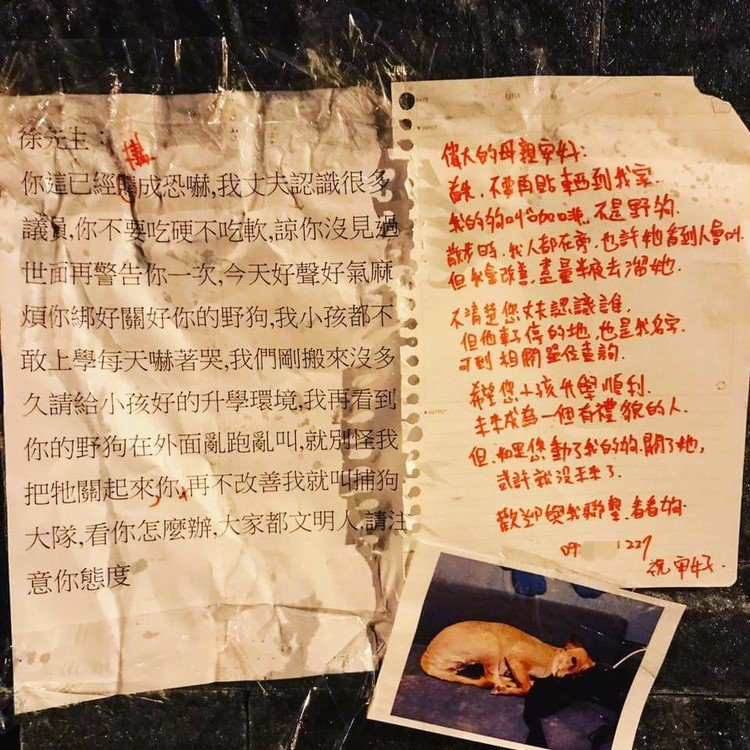 徐先生：
構
你這已經成恐嚇,我丈夫認識很多
議員,你不要吃硬不吃軟,諒你沒見過
世面再警告你一次,今天好聲好氣麻
煩你綁好關好你的野狗,我小孩都不
敢上學每天嚇著哭,我們剛搬來沒多
久請給小孩好的升學環境,我再看到
你的野狗在外面亂跑亂叫,就別怪我
把牠關起來你,再不改善我就叫捕狗
大隊,看你怎麼辦,大家都文明人,請注
意你態度
偉大的母親
首先,不要再貼東西到我家.
我的狗叫,不是野狗.
散步時,我人都在旁,也許她看到人會叫.
但我會改善,盡量半夜去溜她.
不清楚您丈夫認識誰.
但他車子停的地,也是我名字.
可到相關單位查詢.
希望您小孩升學順利.
未來成為一個有禮貌的人.
但,如果您動了我的狗,關了她,
或許就沒未來了.
歡迎與我聯繫,看看狗.
09 1227
祝